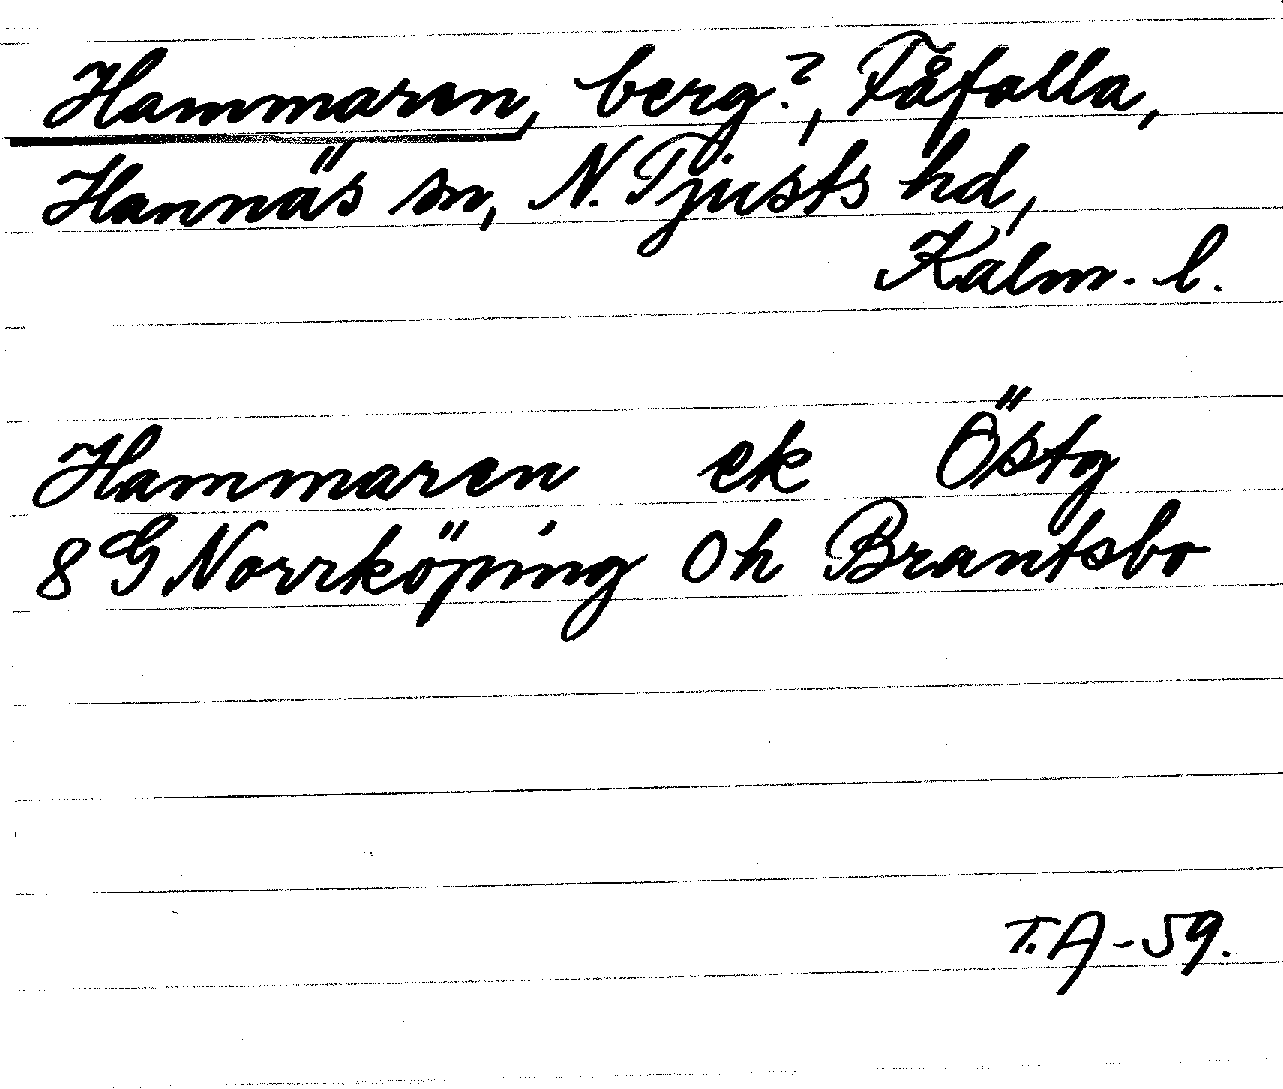 Hammaren, berg?, Fåfalla,
Hannäs sn, N. Tjusts hd,
Kalm. l.
Hammaren ek Östg
8 G Norrköping 0h Brantsbo
T.A-59.